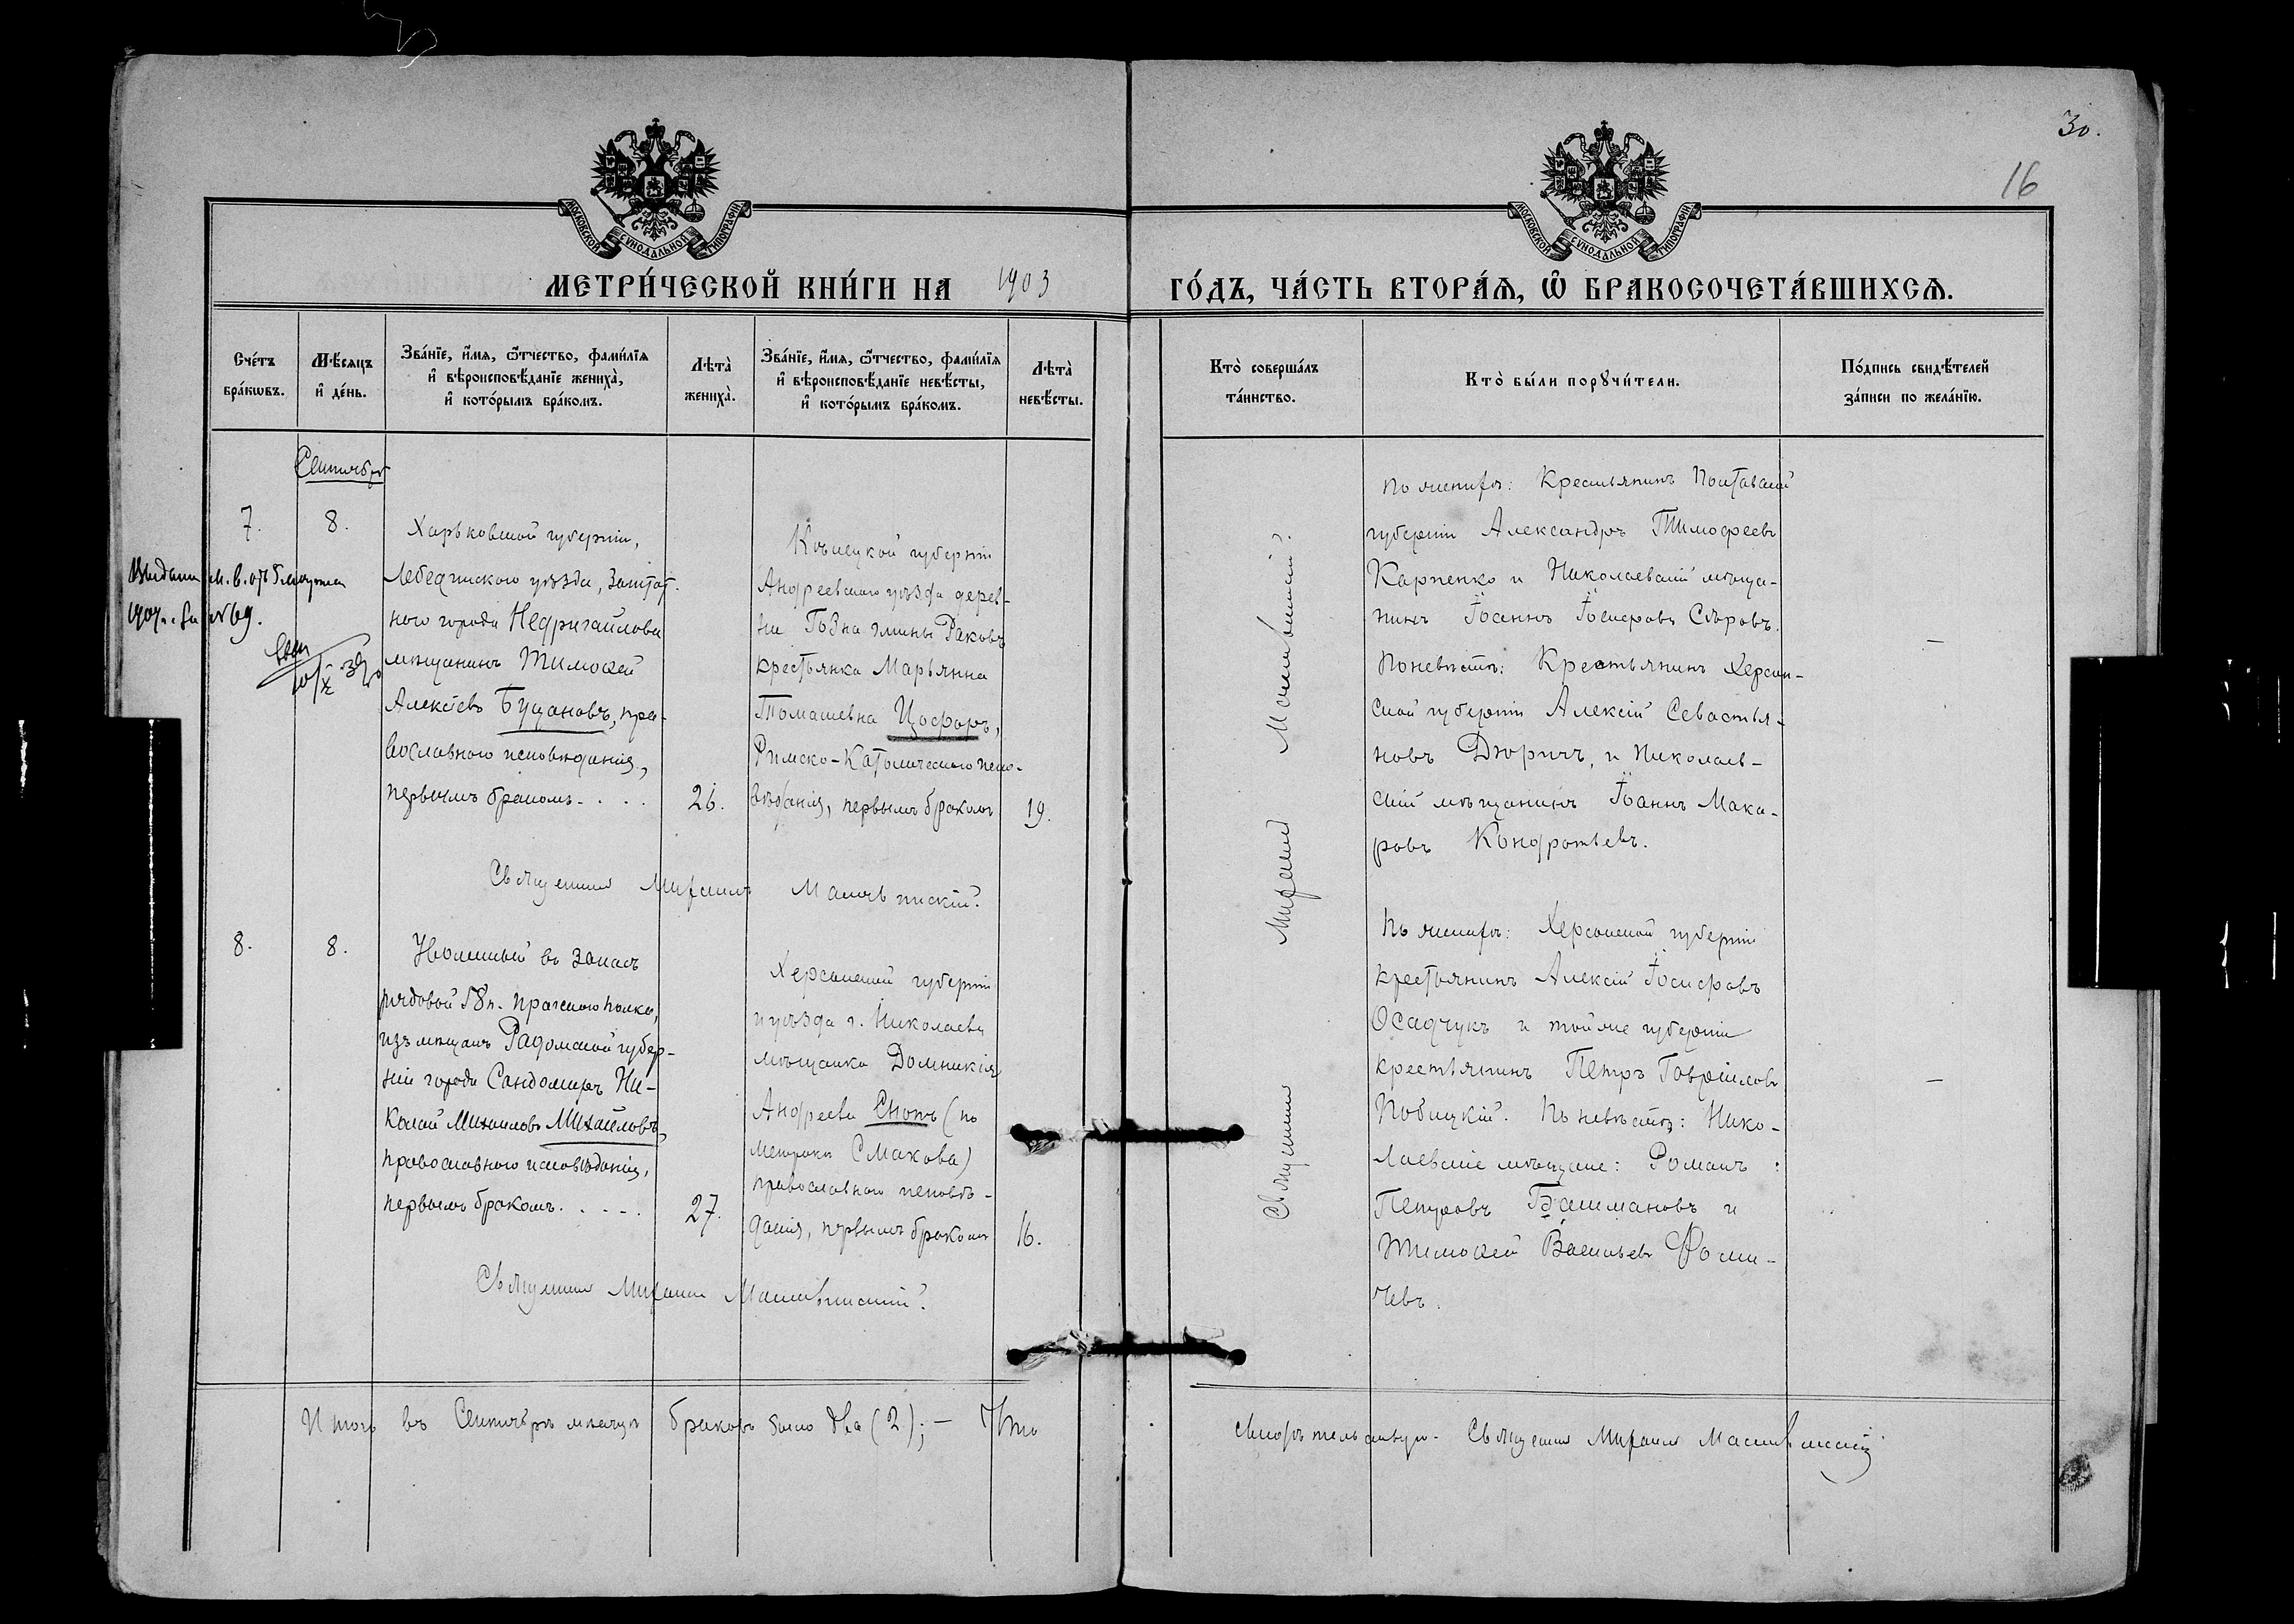 30.
16
МОСКОВСКОЙ СУНОДАЛЬНОЙ ТИПОГРАФІИ
МОСКОВСКОЙ СУНОДАЛЬНОЙ ТИПОГРАФІИ
МЕТРИ́ЧЕСКОЙ КНИ́ГИ НА 1903
ГО́ДЪ, ЧА́СТЬ ВТОРА́Ѧ, Ѽ БРАКОСОЧЕТА́ВШИХСѦ.
Сче́тъ
бра́кѡвъ.
Мѣ́сяцъ
и҆ де́нь.
Зва́нїе, и҆́мѧ, ѻ҆́тчество, фами́лїѧ
и҆ вѣроисповѣ́данїе жениха̀,
и҆ кото́рымъ бра́комъ.
Лѣта̀
жениха̀.
Зва́нїе, и҆́мѧ, ѻ҆́тчество, фами́лїѧ
и҆ вѣроисповѣ́данїе невѣ́сты,
и҆ кото́рымъ бра́комъ.
Лѣта̀
невѣ́сты.
Кто̀ соверша́лъ
та́инство.
Кто̀ бы́ли порꙋчи́тели.
По́дпись свидѣ́телей
за́писи по жела́нїю.
Сентябрь
7.
8.
Харьковской губерніи,
Лебединскаго уѣзда, Заштат-
наго города Недригайлова
мѣщанинъ Тимоѳей
Алексѣевъ Буцановъ, пра-
вославнаго исповѣданія,
первымъ бракомъ. . . .
26.
Кѣлецкой губерніи
Андреевскаго уѣзда дерев-
ни Гозна гмины Раковъ
крестьянка Марьянна
Томашевна Цофоръ,
Римско-Католическаго испо-
вѣданія, первымъ бракомъ
19.
По женихѣ: Крестьянинъ Полтавской
губерніи Александръ Тимофеевъ
Карпенко и Николаевскій мѣща-
нинъ Іоаннъ Іосифовъ Сѣровъ.
По невѣстѣ: Крестьянинъ Херсон-
ской губерніи Алексій Севастья-
новъ Дюричъ, и Николаев-
скій мѣщанинъ Іоаннъ Мака-
ровъ Кондратьевъ.
Священникъ Михаилъ
8.
8.
Уволенный въ запасъ
рядовой 58 п. Прагскаго полка,
изъ мѣщанъ Радомской губер-
ніи города Сандомиръ Ни-
колай Михаиловъ Михайловъ,
православнаго исповѣданія,
первымъ бракомъ. . . . .
27.
Херсонской губерніи
и уѣзда г. Николаева
мѣщанка Домникія
Андреева Снопъ (по
метрикѣ Смакова)
православнаго исповѣ-
данія, первымъ бракомъ
16.
По женихѣ: Херсонской губерніи
крестьянинъ Алексій Іосифовъ
Осадчукъ и той же губерніи
крестьянинъ Петръ Гавріиловъ
Побицкій. По невѣстѣ: Нико-
лаевскіе мѣщане: Романъ
Петровъ Башмановъ и
Тимоѳей Васильевъ Фоми-
чевъ.
Священникъ Михаилъ
Священникъ Михаилъ
Итого въ Сентябрѣ мѣсяцѣ браковъ было два (2); — Что
свидѣтельствую. Священникъ Михаилъ